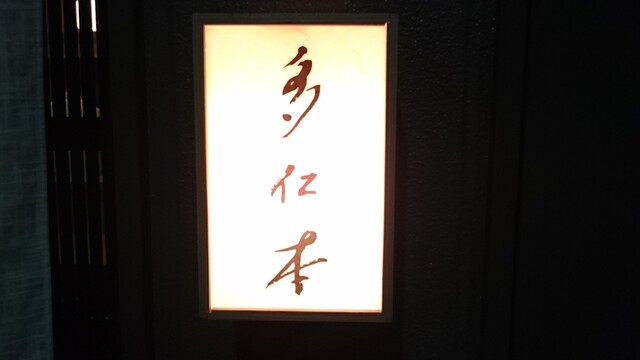 多仁本